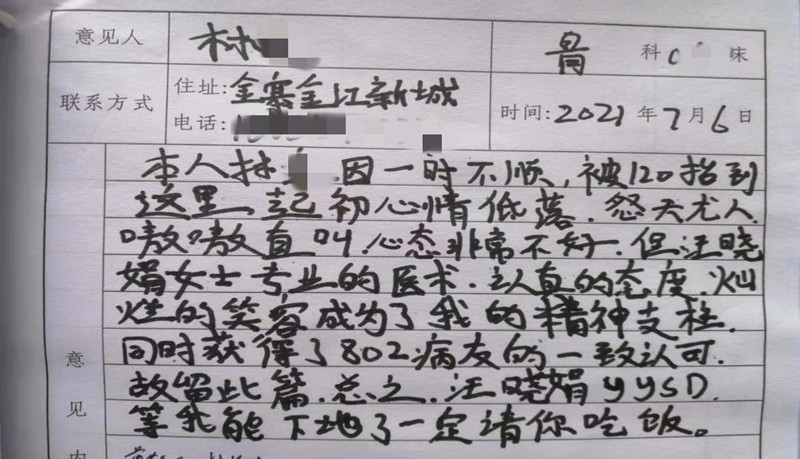 意见人 林 骨 科 床
联系方式 住址:金寨金江新城
电话: 时间:2021年7月6日
本人林 因一时不顺,被120抬到
这里、起初心情低落.怨天尤人.
嗷嗷直叫.心态非常不好.但汪晓
娟女士专业的医术.认真的态度.灿
烂的笑容成为了我的精神支柱.
同时获得了802病友的一致认可.
意 故留此篇.总之.汪晓娟yysD.
见 等我能下地了一定请你吃饭。
内